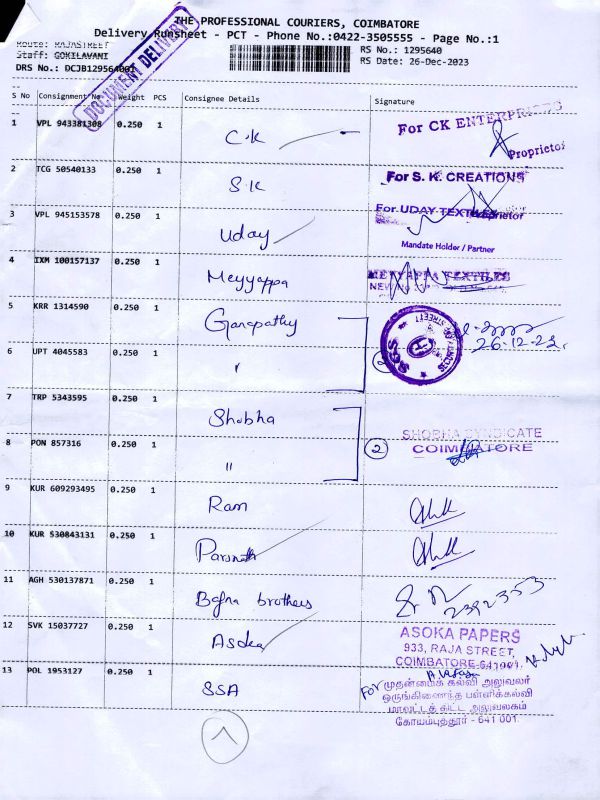 THE PROFESSIONAL COURIERS, COIMBATORE
Delivery Runsheet - PCT - Phone No.:0422-3505555 - Page No.:1
Route: RAJASTREET
RS No.: 1295640
Staff: GOKILAVANI
RS Date: 26-Dec-2023
DRS No.: DCJB129564001
DOCUMENT DELIVERY
S No Consignment No Weight PCS Consignee Details Signature
1 VPL 943381308 0.250 1 C.K
For CK ENTERPRISES
Proprietor
2 TCG 50540133 0.250 1 S.K
For S. K. CREATIONS
Proprietor
3 VPL 945153578 0.250 1 Uday
For UDAY TEXTILES
Mandate Holder / Partner
4 IXM 100157137 0.250 1 Meyyappa
MEYYAPPA TEXTILES
5 KRR 1314590 0.250 1 Ganapathy
26.12.23
6 UPT 4045583 0.250 1 "
7 TRP 5343595 0.250 1 Shobha
SHOBHA SYNDICATE
COIMBATORE
8 PON 857316 0.250 1 "
2
9 KUR 609293495 0.250 1 Ram
10 KUR 530843131 0.250 1 Parsnath
11 AGH 530137871 0.250 1 Bafna brothers
2392353
12 SVK 15037727 0.250 1 Asoka
ASOKA PAPERS
933, RAJA STREET,
COIMBATORE-641001.
13 POL 1953127 0.250 1 SSA
For முதன்மைக் கல்வி அலுவலர்
ஒருங்கிணைந்த பள்ளிக்கல்வி
மாவட்டத் திட்ட அலுவலகம்
கோயம்புத்தூர் - 641 001.